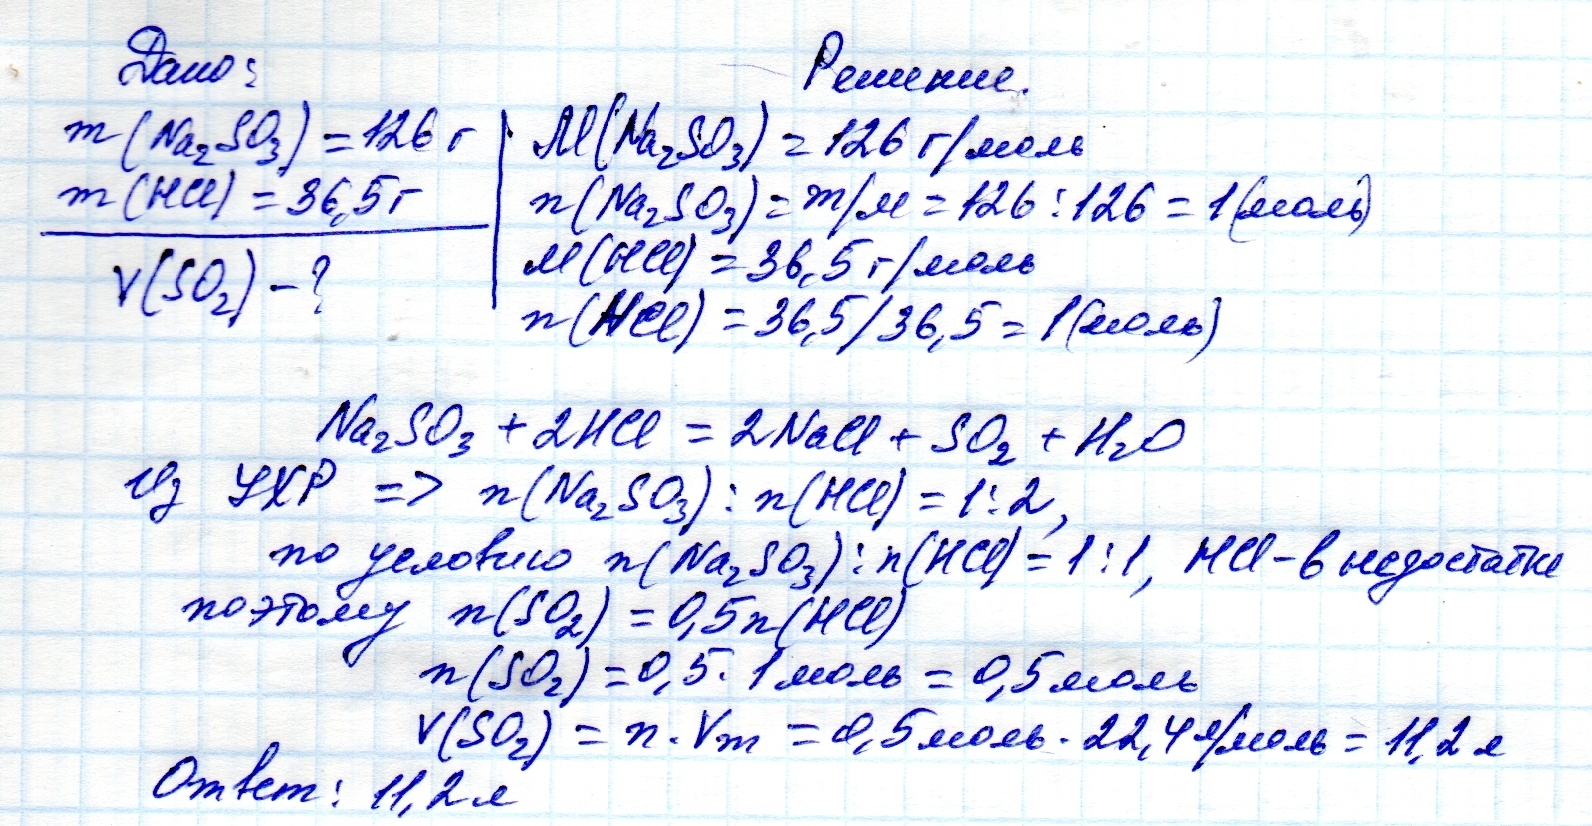 Дано:
m(Na₂SO₃) = 126 г
m(HCl) = 36,5 г
V(SO₂) - ?
Решение.
M(Na₂SO₃) = 126 г/моль
n(Na₂SO₃) = m/M = 126 : 126 = 1 (моль)
M(HCl) = 36,5 г/моль
n(HCl) = 36,5/36,5 = 1 (моль)
Na₂SO₃ + 2HCl = 2NaCl + SO₂ + H₂O
Из УХР => n(Na₂SO₃) : n(HCl) = 1 : 2,
по условию n(Na₂SO₃) : n(HCl) = 1 : 1, HCl - в недостатке
поэтому n(SO₂) = 0,5n(HCl)
n(SO₂) = 0,5 · 1 моль = 0,5 моль
V(SO₂) = n · Vm = 0,5 моль · 22,4 л/моль = 11,2 л
Ответ: 11,2 л